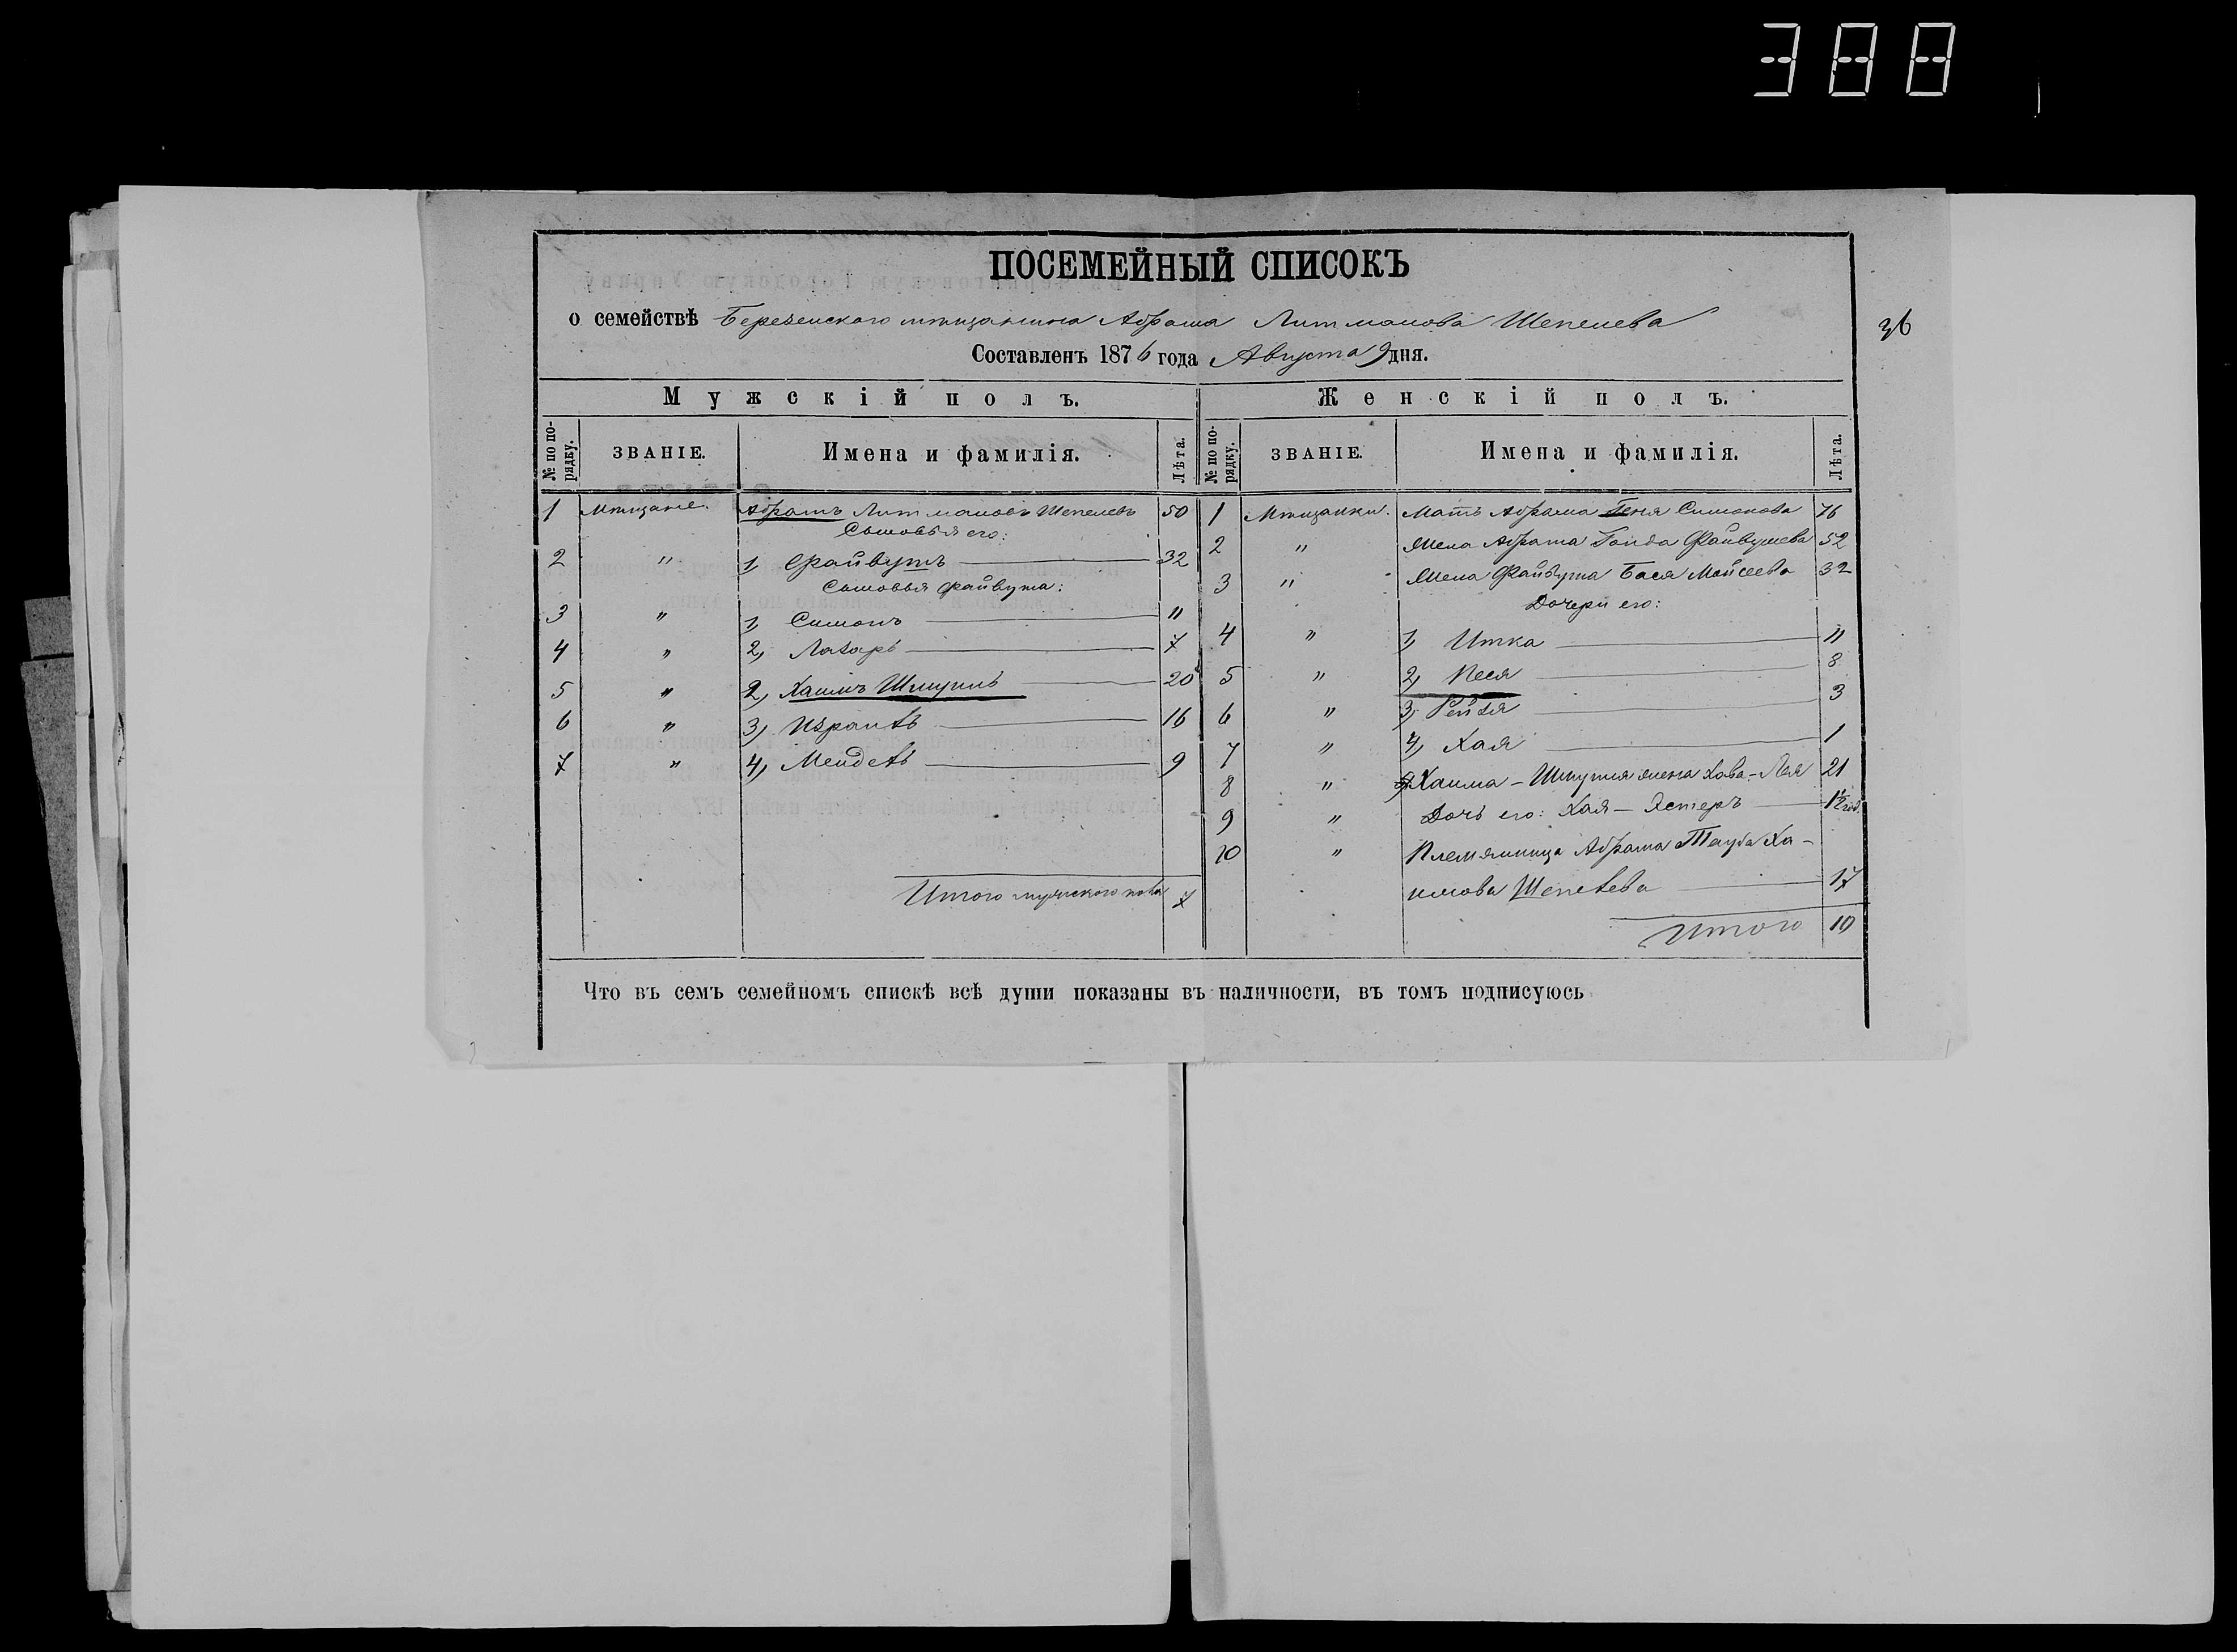 388
ПОСЕМЕЙНЫЙ СПИСОКЪ
о семействѣ Березенского мѣщанина Абрама Литманова Шепелева
36
Составленъ 1876 года Августа 9 дня.
Мужскій полъ. Женскій полъ.
№ по порядку. ЗВАНІЕ. Имена и фамилія. Лѣта. № по порядку. ЗВАНІЕ. Имена и фамилія. Лѣта.
1 Мѣщане. Абрамъ Литмановъ Шепелевъ 50
Сыновья его:
2 " 1, Файвушъ 32
Сыновья Файвуша:
3 " 1, Симонъ 11
4 " 2, Лазарь 7
5 " 2, Хаимъ Шмуиль 20
6 " 3, Израиль 16
7 " 4, Мендель 9
Итого мужского пола 7
1 Мѣщанки. Мать Абрама Геня Симонова 76
2 " Жена Абрама Голда Файвушева 52
3 " Жена Файвуша Бася Мойсеева 32
Дочери его:
4 " 1, Итка 11
5 " 2, Песя 8
6 " 3, Рейзя 3
7 " 4, Хая 1
8 " Хаима-Шмуиля жена Хава-Лея 21
9 " Дочь его: Хая-Эстеръ 1/2 год.
10 " Племянница Абрама Тауба Ха-
имова Шепелева 17
Итого 10
Что въ семъ семейномъ спискѣ всѣ души показаны въ наличности, въ томъ подписуюсь